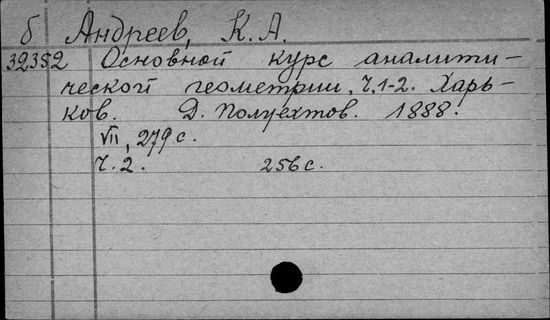 б Андреев, К. А.
32352 Основной курс аналити-
ческой геометрии. Ч. 1-2. Харь-
ков. Д. Полуехтов. 1888.
VII, 279 с.
Ч. 2. 256 с.